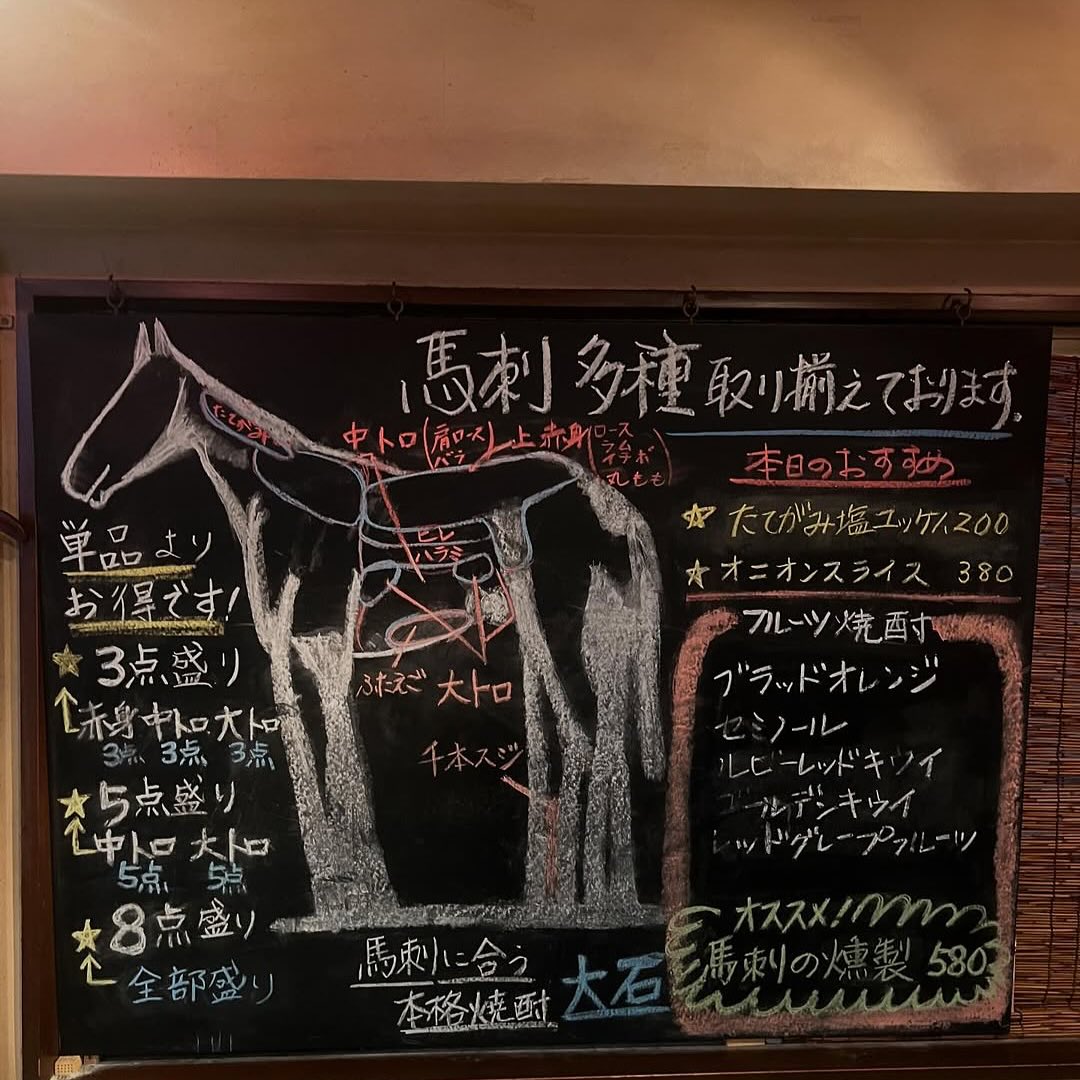 馬刺 多種 取り揃えております。
たてがみ
中トロ(肩ロース バラ)
上赤身(ロース ネクタイ 丸もも)
ヒレ
ハラミ
ふたえご 大トロ
千本スジ
単品より
お得です!
☆3点盛り
赤身 中トロ 大トロ
3点 3点 3点
☆5点盛り
中トロ 大トロ
5点 5点
☆8点盛り
全部盛り
馬刺に合う
本格焼酎 大石
本日のおすすめ
☆たてがみ塩ユッケ 1,200
☆オニオンスライス 380
フルーツ焼酎
ブラッドオレンジ
セミノール
ルビーレッドキウイ
ゴールデンキウイ
レッドグレープフルーツ
オススメ!
馬刺の燻製 580